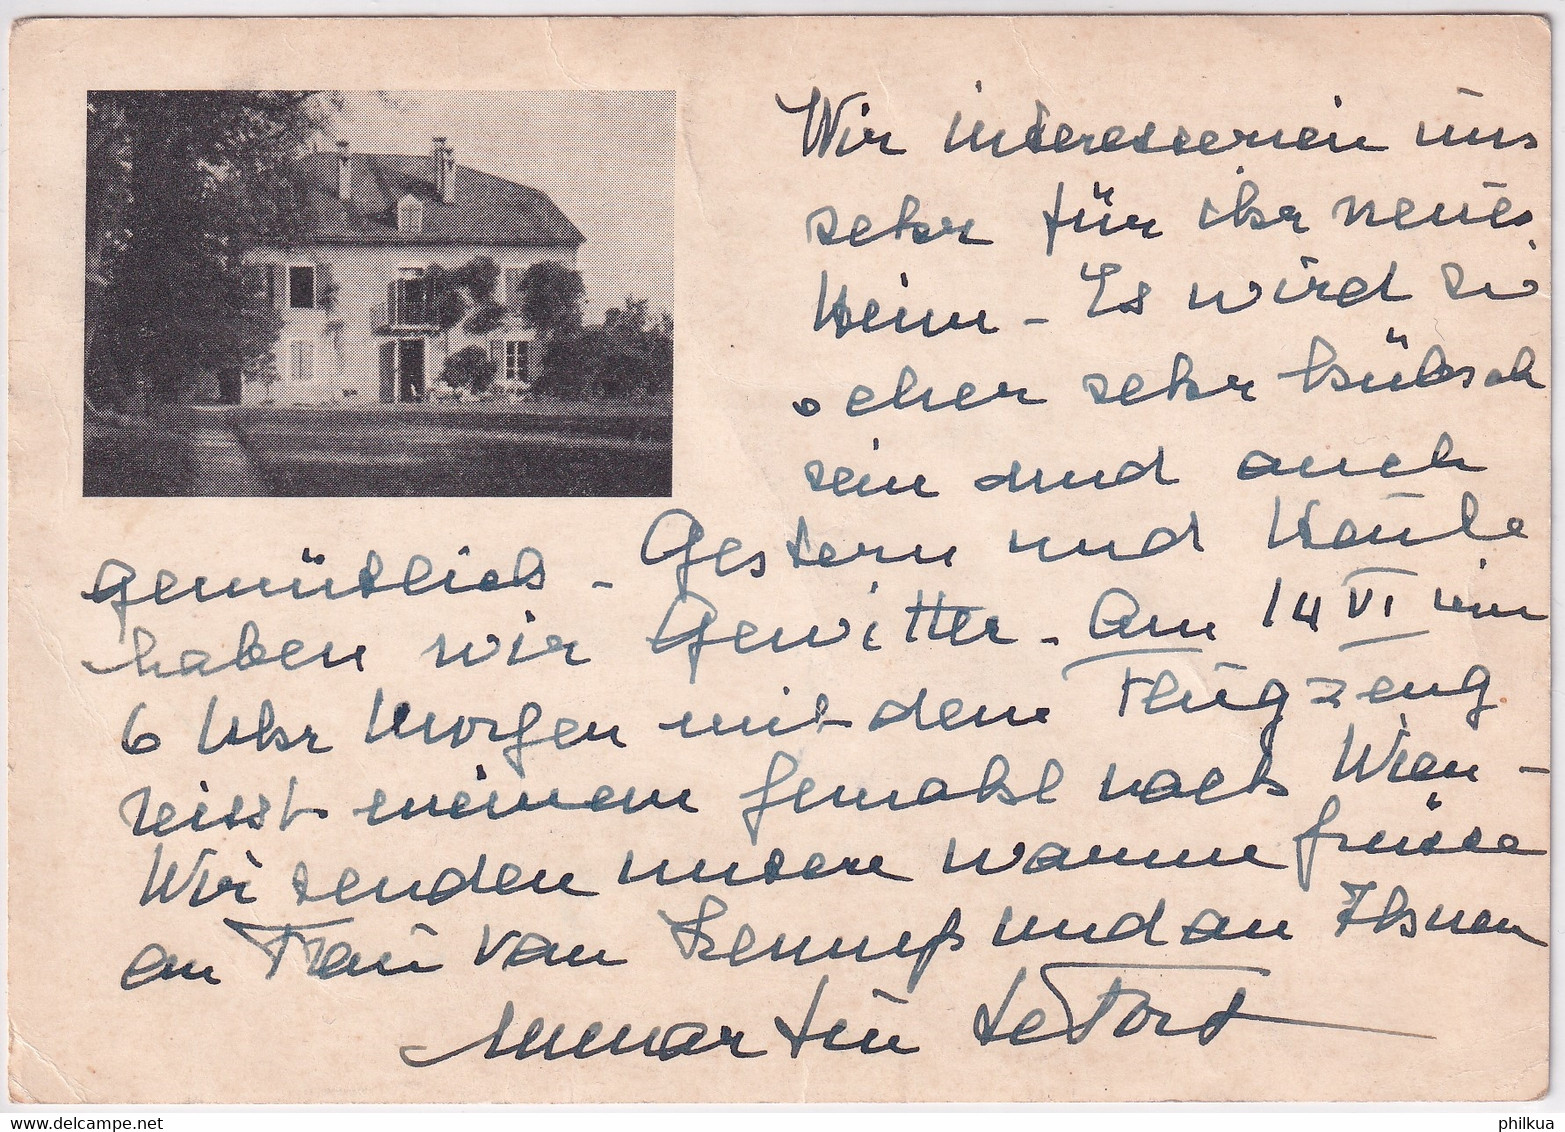 Wir interesserien uns
sehr für ihr neues
Heim - Es wird si
cher sehr hübsch
sein und auch
gemütlich - Gestern und Heute
haben wir Gewitter - Am 14 VI um
6 Uhr Morgen mit dem Flugzeug
reisst meinem Gemahl nach Wien -
Wir senden unsere warme Grüsse
an Frau van und an Ihsnen
Le Fort
www.delcampe.net
philkua